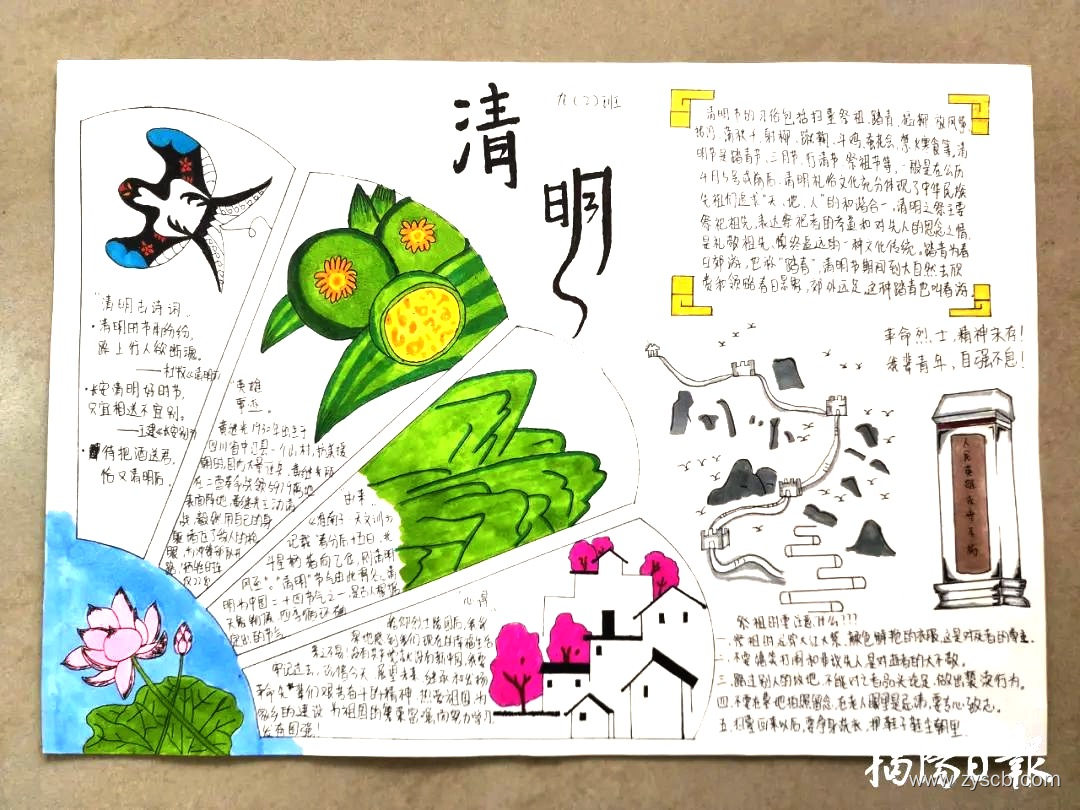 清明
九(2)班
清明节的习俗包括扫墓祭祖、踏青、插柳、放风筝
荡秋千、射柳、蹴鞠、斗鸡、蚕花会、禁火寒食等,清
明节是踏青节、三月节、行清节、祭祖节等,一般是在公历
4月5号或前后,清明礼俗文化充分体现了中华民族
先祖们追求“天、地、人”的和谐合一,清明之祭主要
祭祀祖先,表达祭祀者的孝道和对先人的思念之情,
是礼敬祖先、慎终追远的一种文化传统。踏青为春
日郊游,也称“踏青”,清明节期间到大自然去欣
赏和领略春日景象,郊外远足,这种踏青也叫春游
革命烈士,精神永存!
我辈青年,自强不息!
人民英雄永垂不朽
“清明古诗词
·清明时节雨纷纷,
路上行人欲断魂。
——杜牧《清明》
·长安清明好时节,
只宜相送不宜别。
——王建《长安别》
·待把酒送君,
恰又清明后。
“英雄
事迹。
四川省中江县一个山村,
由来
《淮南子·天文训》
记载:“春分后十五日,
斗星柄指向乙位,则清明
风至”。“清明”节气由此得名。清
明为中国二十四节气之一,是古人根据
“心得
牢记过去,珍惜今天,展望未来,继承和发扬
革命先辈们艰苦奋斗的精神,热爱祖国,为
家乡的建设,为祖国的繁荣富强,而努力学习
发奋图强!
祭祖时要注意什么???
一、祭祖时忌穿大红大紫、颜色鲜艳的衣服,这是对死者的尊重。
二、不要嬉笑打闹和非议先人,是对逝者的大不敬。
三、路过别人的坟地,不能对之者品头论足,做出亵渎行为。
四、不要在墓地拍照留念,在老人眼里是忌讳,要专心致志。
五、扫墓回来以后,要净身洗衣,把鞋子鞋尖朝里.
揭阳日报
www.zyscb.com